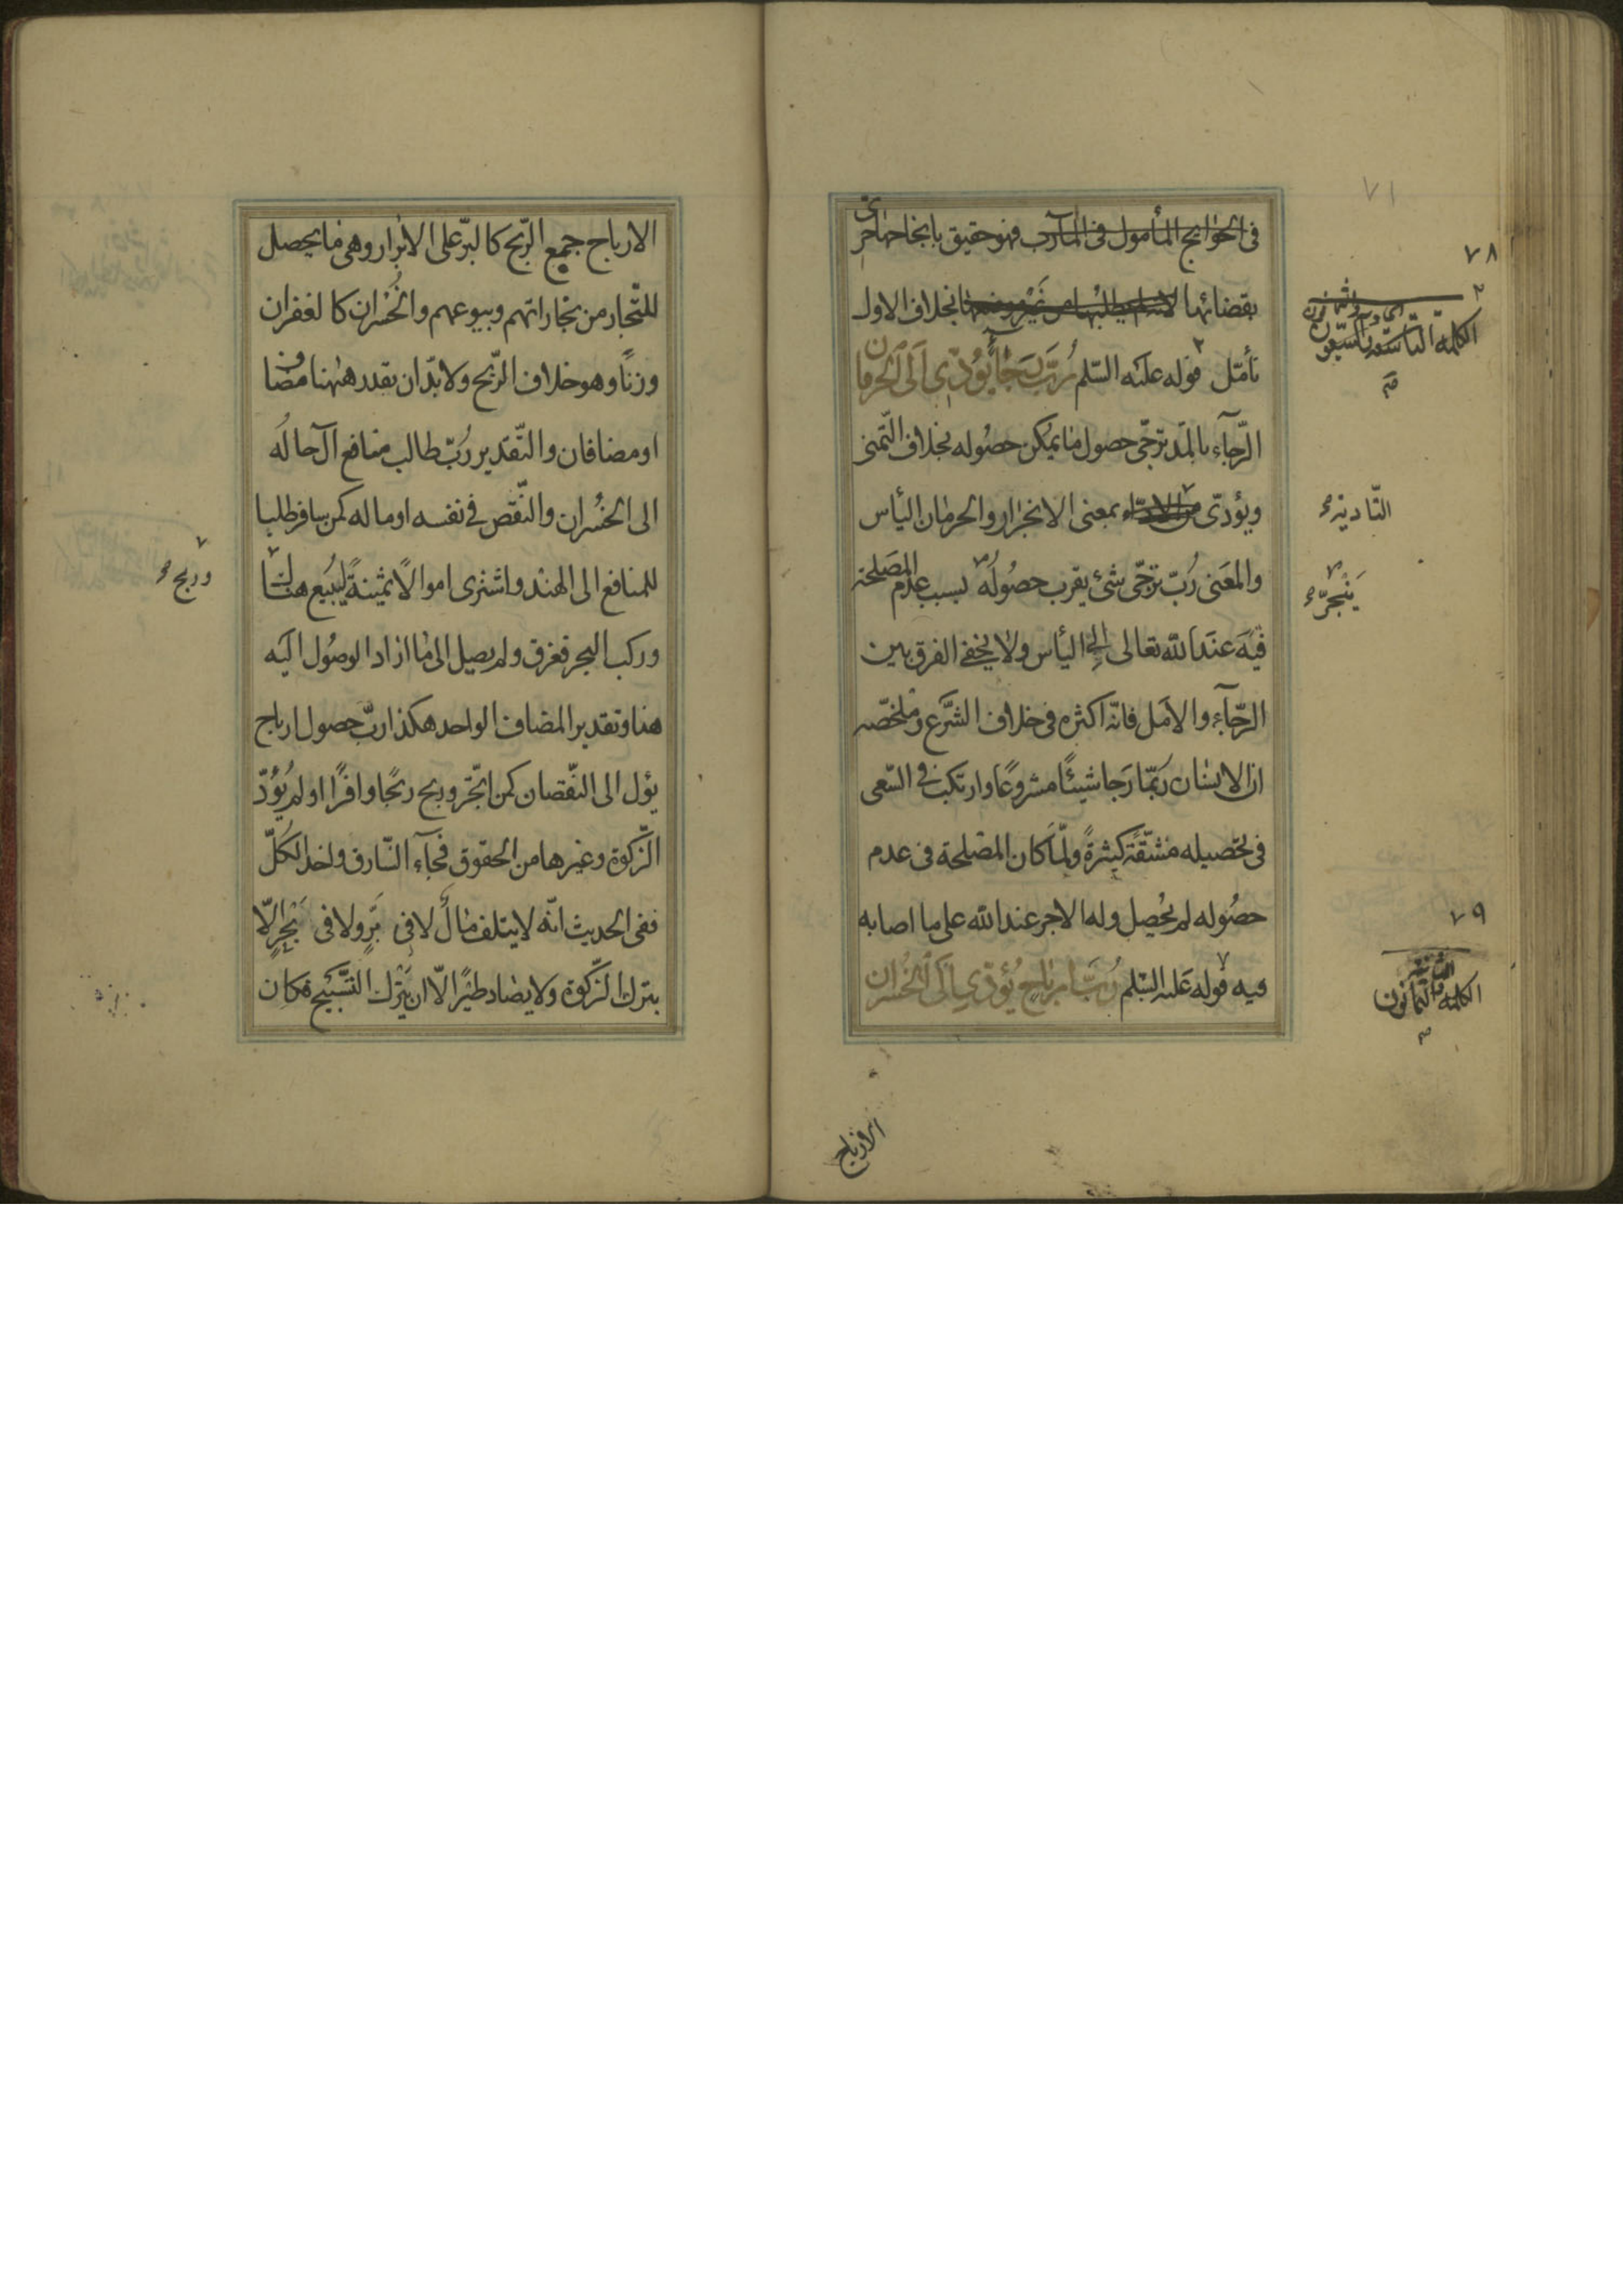 ٧١
في الحوايج المأمول في المآرب فهو حقيق بانجاحها حرى
بقضائها بخلاف الاول
تأمّل قوله عليه السّلم رُبَّ رَجَآءٍ يُؤَدّى اِلَى الحِرمانِ
الرّجآء بالمدّ ترجّى حصول ما يمكن حصُوله بخلاف التّمنى
ويؤدّى من الاداء بمعنى الانجرار والحرمان اليأس
والمعَنى رُبّ ترجّى شئ يقرب حصُولُه بسبب عدم المصَلحة
فيه عنَد الله تعالى الى اليأس ولا يخفى الفرق بين
الرجآء والامَل فانّه اكثره فى خلاف الشّرع وملخصّه
ان الانسان ربمّا رَجا شيئًا مشروعًا وارتكب فى السّعى
فى تحصيله مشقّة كثيرةً ولمّا كان المصَلحة فى عدم
حصُوله لم يحُصل وله الاجر عند الله على ما اصابه
فيه قوله عليه السّلم رُبَّ اَرباحٍ يُؤَدّى اِلَى الخُسران
٧٨
الكلمة التّاسعة والسّبعون
صح
التّأدية
يَنْجرّ
٧٩
الكلمة الثّمانون
صح
الارباح
الارباح جمع الرّبح كالبرّ على الابرار وهى ما يحصل
للتّجار من تجاراتهم وبيوعهم والخُسْران كالغفران
وزنًا وهو خلاف الرّبح ولا بدّ ان يقدر ههُنا مضاف
او مضافان والتّقدير رُبّ طالب منافع آل حالُه
الى الخُسْران والنّقص فى نفسه او ماله كمن سافر طلبا
للمنافع الى الهند واشترى اموالًا ثمينةً ليَبيع هناك
وركب البحر فغرق ولم يصل الى ما اراد الوصُول اليَه
هنا وتقدير المضاف الواحد هكذا ربّ حصول ارباح
يؤل الى النّقصان كمن اتّجر وربح ربحًا وافرًا او لم يُؤدّ
الزّكوة وغيرها من الحقوق فجآء السّارق واخذ الكُلّ
ففى الحديث انّه لا يتلف مٰال لا فى بَرٍّ ولا فى بَحْرٍ الّا
بترك الزّكوة ولا يصٰاد طيْرًا الّا ان يَتْرك التّسَبيح فكان
وربح